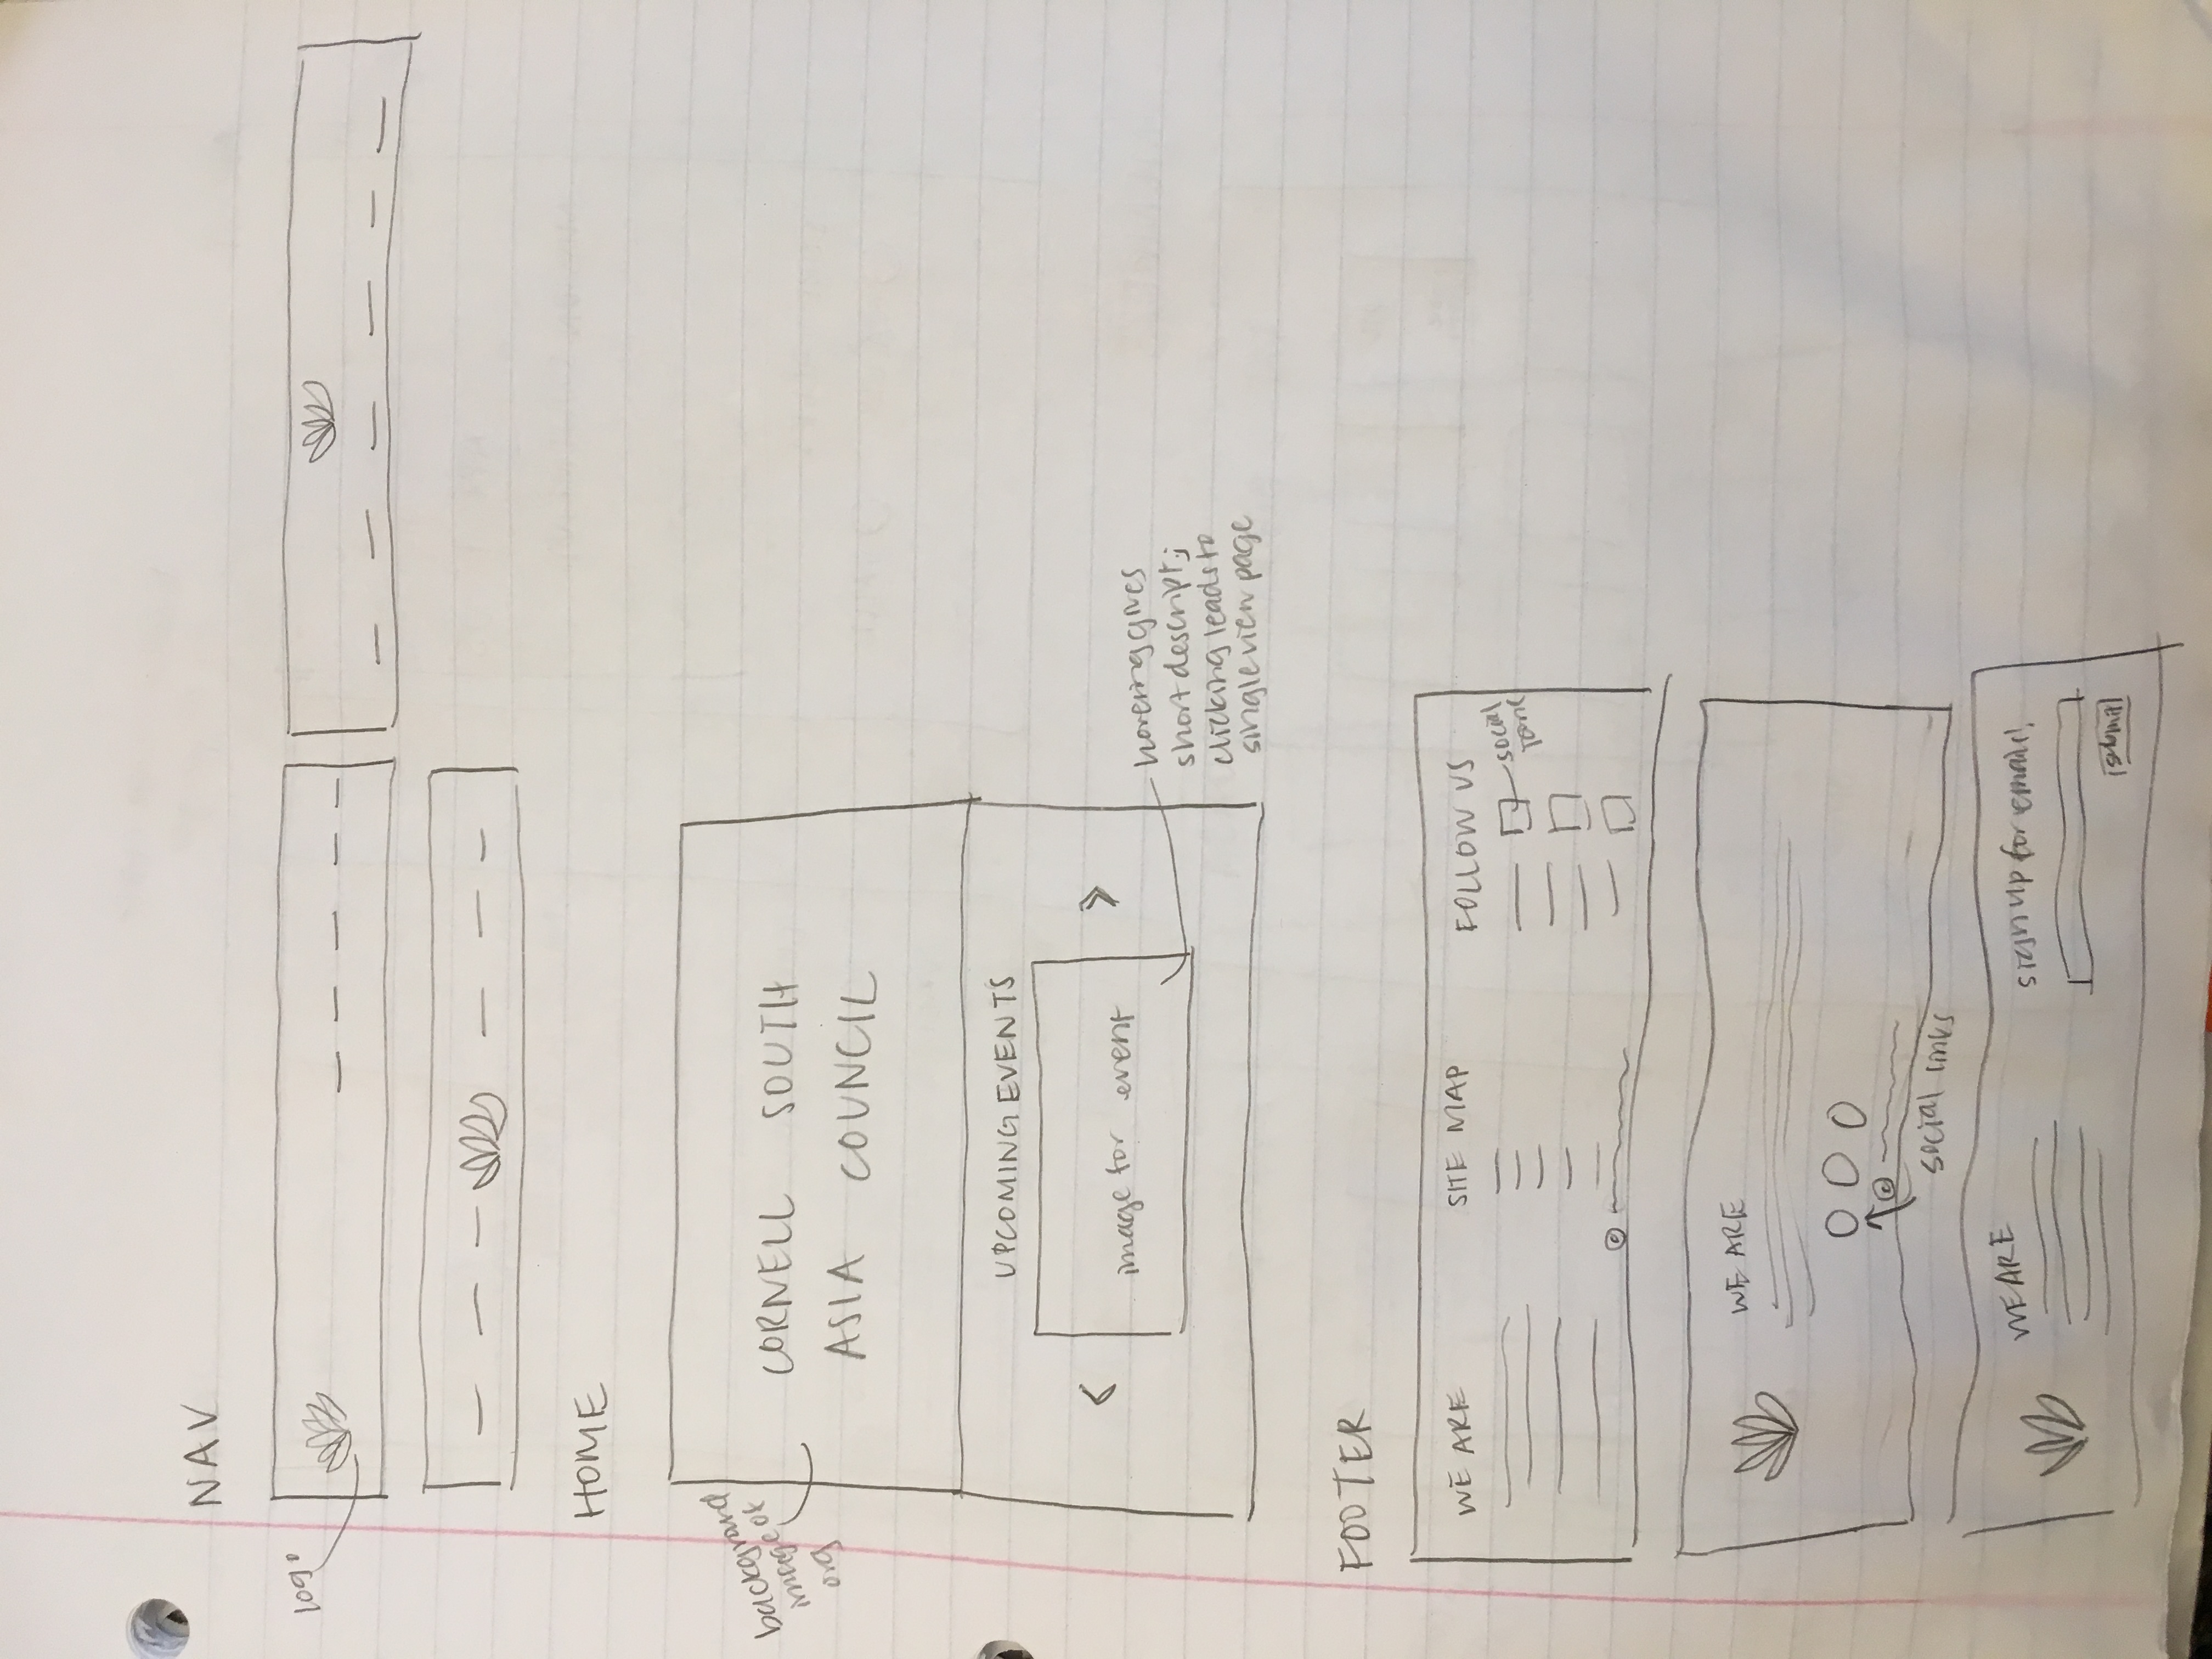 NAV
logo
HOME
background
image of
org
CORNELL SOUTH
ASIA COUNCIL
UPCOMING EVENTS
<
image for event
>
hovering gives
short descript;
clicking leads to
single view page
FOOTER
WE ARE
SITE MAP
FOLLOW US
social
©
WE ARE
©
social links
WE ARE
sign up for email!
submit